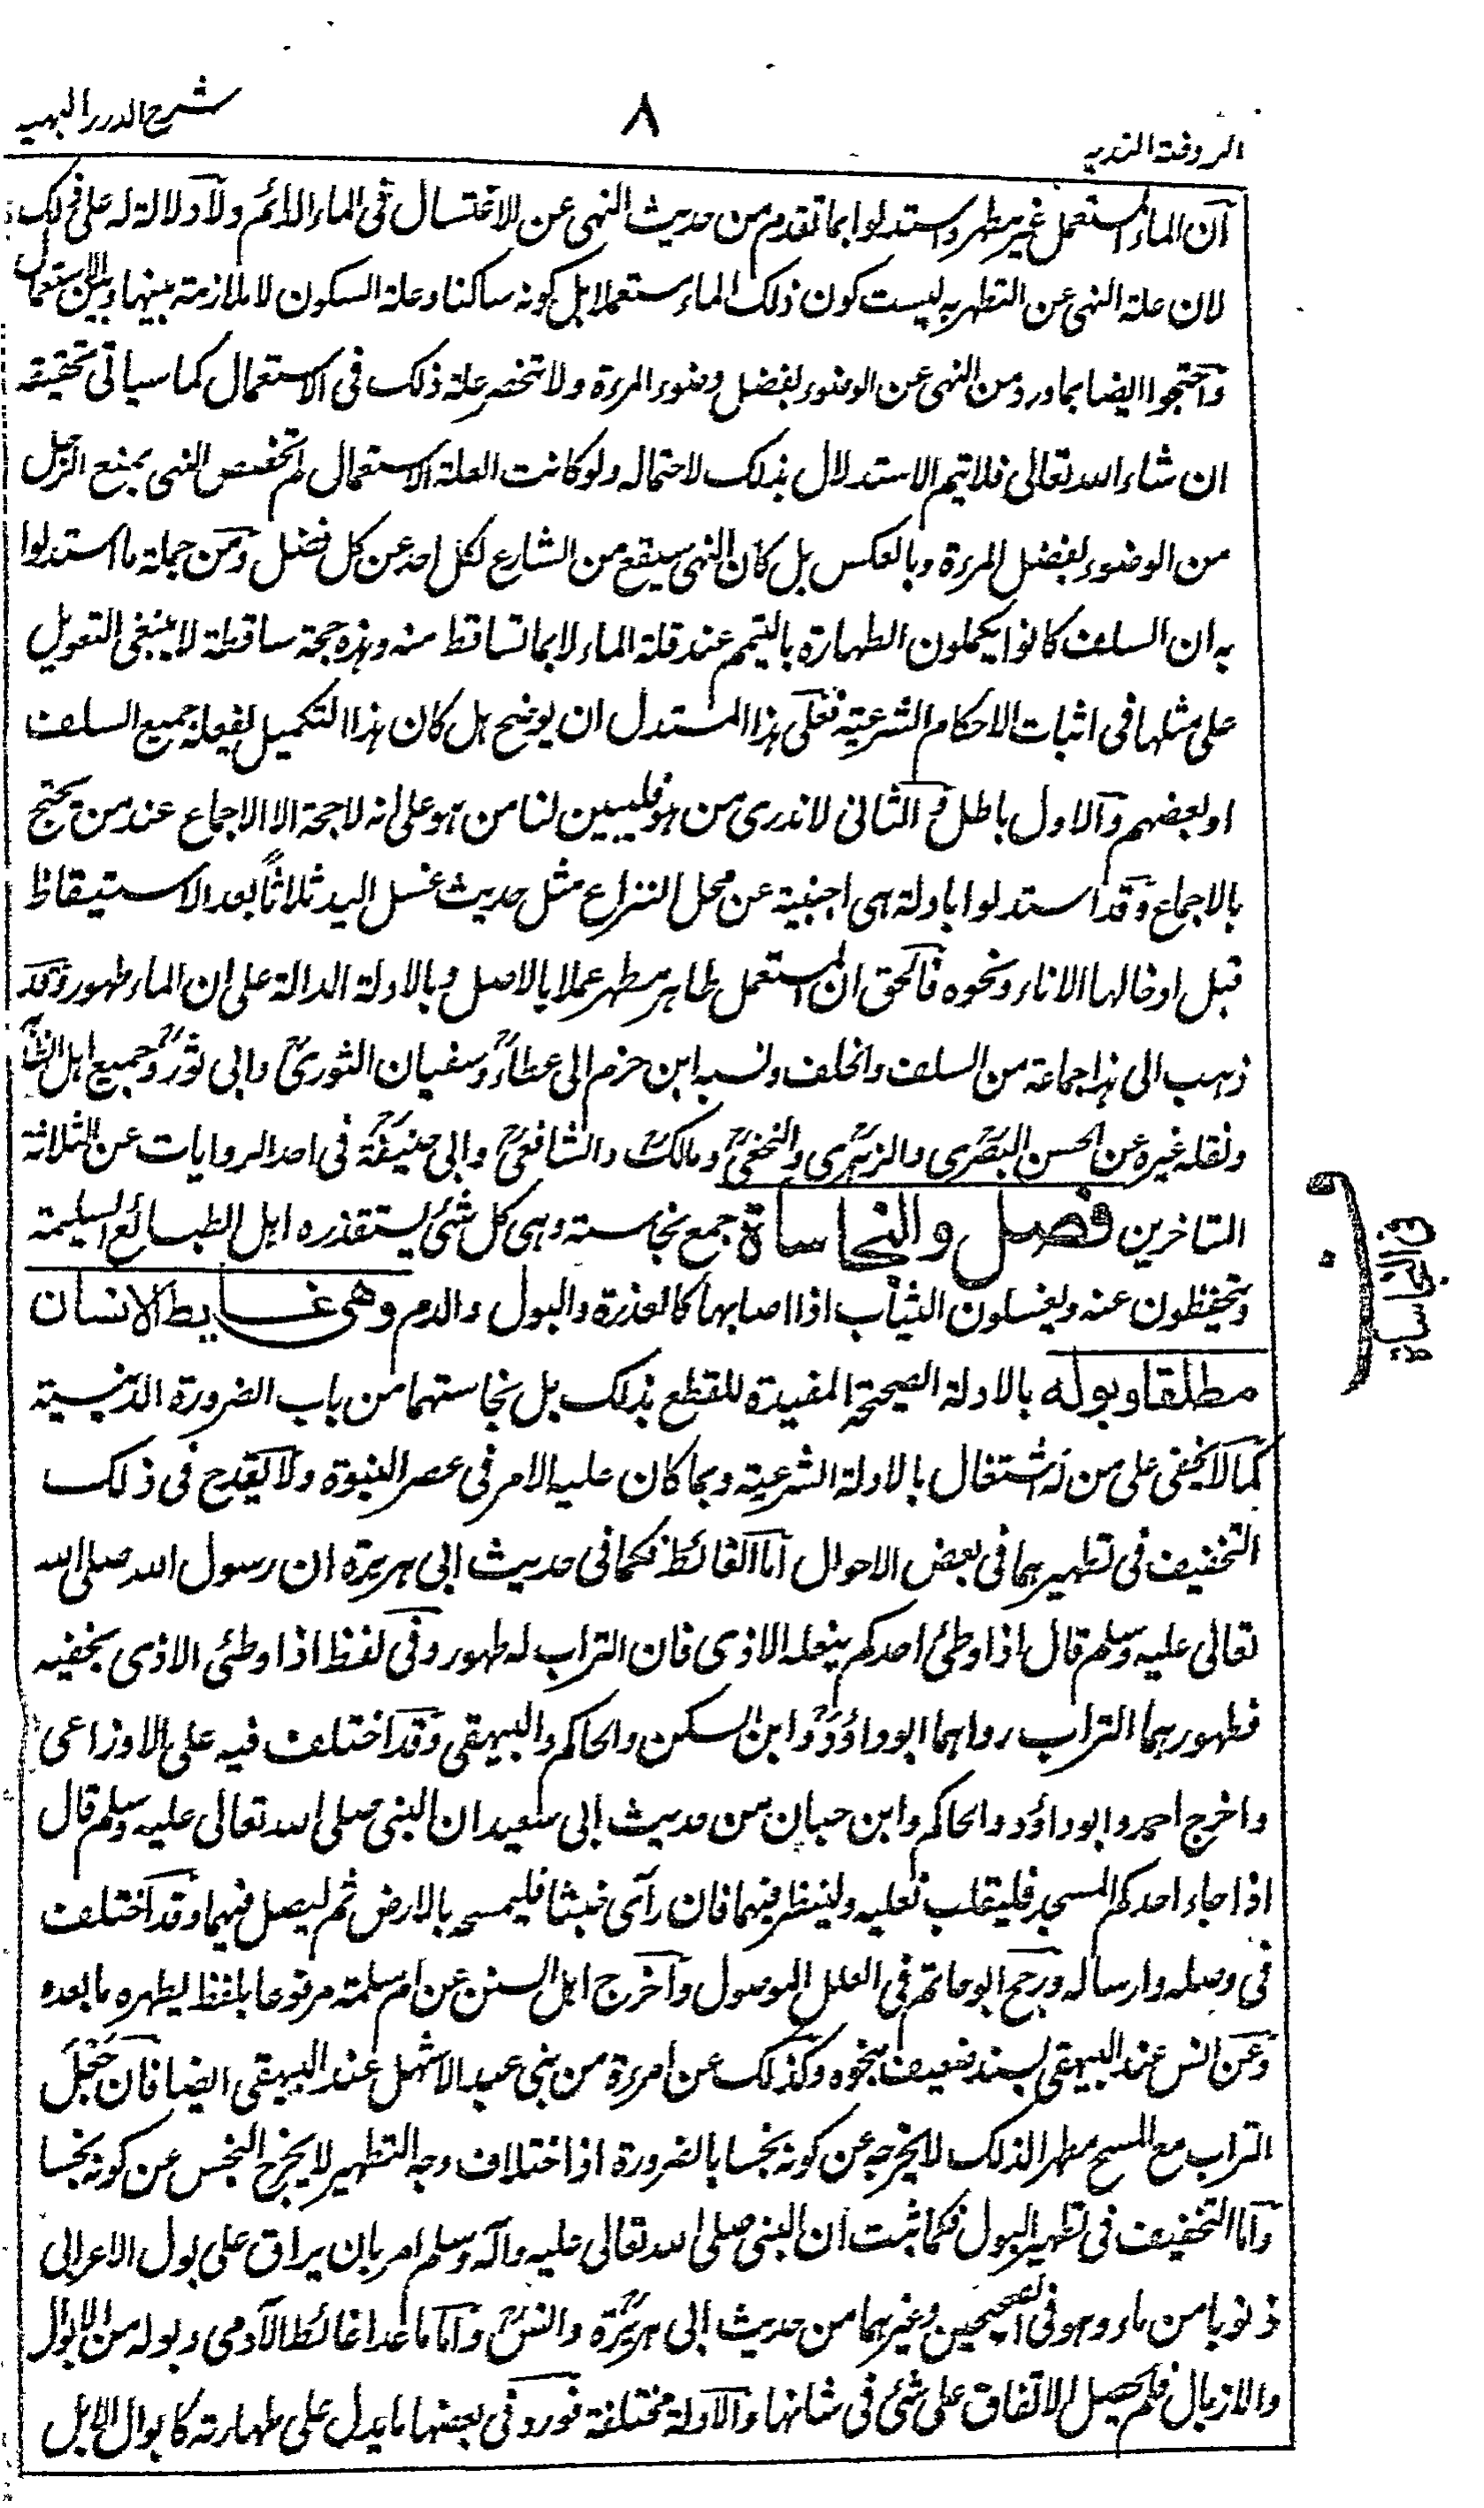 شرح الدرر البهية
٨
الروضة الندية
ان الماء المستعمل غير مطهر واستدلوا بما تقدم من حديث النهى عن الاغتسال فى الماء الدائم ولا دلالة له على ذلك
لان علة النهى عن التطهر به ليست كون ذلك الماء مستعملا بل كونه ساكنا وعلة السكون لا ملازمة بينها وبين الاستعمال
واحتجوا ايضا بما ورد من النهى عن الوضوء بفضل وضوء المرءة ولا تنحصر علة ذلك فى الاستعمال كما سياتى تحقيقه
ان شاء الله تعالى فلا يتم الاستدلال بذلك لاحتماله ولو كانت العلة الاستعمال لم تختص النهى بمنع الرجل
من الوضوء بفضل المرءة وبالعكس بل كان النهى سيقع من الشارع لكل احد عن كل فضل ومن جملة ما استدلوا
به ان السلف كانوا يكملون الطهارة بالتيمم عند قلة الماء لا بما تساقط منه وهذه حجة ساقطة لا ينبغى التعويل
على مثلها فى اثبات الاحكام الشرعية فعلى هذا المستدل ان يوضح هل كان هذا التكميل يفعله جميع السلف
او بعضهم والاول باطل والثانى لا ندرى من هو فليبين لنا من هو على انه لا حجة الا الاجماع عند من يحتج
بالاجماع وقد استدلوا بادلة هى اجنبية عن محل النزاع مثل حديث غسل اليد ثلاثاً بعد الاستيقاظ
قبل ادخالها الاناء ونحوه فالحق ان المستعمل طاهر مطهر عملا بالاصل وبالادلة الدالة على ان الماء طهور وقد
ذهب الى هذا جماعة من السلف والخلف ونسبه ابن حزم الى عطاء وسفيان الثورى وابى ثور وجميع اهل الظاهر
ونقله غيره عن الحسن البصرى والزهرى والنخعى ومالك والشافعى وابى حنيفة فى احد الروايات عن الثلاثة
المتاخرين فصل والنجاساة جمع نجاسة وهى كل شئ يستقذره اهل الطبائع السليمة
ويتحفظون عنه ويغسلون الثياب اذا اصابها كالعذرة والبول والدم وهى غايط الانسان
مطلقا وبوله بالادلة الصحيحة المفيدة للقطع بذلك بل نجاستهما من باب الضرورة الدينية
كما لا يخفى على من له اشتغال بالادلة الشرعية وبما كان عليه الامر فى عصر النبوة ولا يقدح فى ذلك
التخفيف فى تطهيرهما فى بعض الاحوال اما الغائط فكما فى حديث ابى هريرة ان رسول الله صلى الله
تعالى عليه وسلم قال اذا وطئ احدكم بنعله الاذى فان التراب له طهور وفى لفظ اذا وطئى الاذى بخفيه
فطهورهما التراب رواهما ابو داؤد وابن السكن والحاكم والبيهقى وقد اختلف فيه على الاوزاعى
واخرج احمد وابو داؤد والحاكم وابن حبان من حديث ابى سعيد ان النبى صلى الله تعالى عليه وسلم قال
اذا جاء احدكم المسجد فليقلب نعليه ولينظر فيهما فان رآى خبثا فليمسحه بالارض ثم ليصل فيهما وقد اختلف
فى وصله وارساله ورجح ابو حاتم فى العلل الموصول وأخرج اهل السنن عن ام سلمة مرفوعا بلفظ يطهره ما بعده
وعن انس عند البيهقى بسند ضعيف بنحوه وكذلك عن امرءة من بنى عبد الاشهل عند البيهقى ايضا فان جعل
التراب مع المسح مطهرا لذلك لا يخرجه عن كونه نجسا بالضرورة اذا ختلاف وجه التطهير لا يخرج النجس عن كونه نجسا
واما التخفيف فى تطهير البول فكما ثبت ان النبى صلى الله تعالى عليه وآله وسلم امر بان يراق على بول الاعرابى
ذنوبا من ماء وهو فى الصحيحين وغيرهما من حديث ابى هريرة وانس واما ما عدا غائط الآدمى وبوله من الابوال
والازبال فلم يحصل الاتفاق على شئ فى شانها والادلة مختلفة فورد فى بعضها ما يدل على طهارته كابوال الابل
ف النجاساة